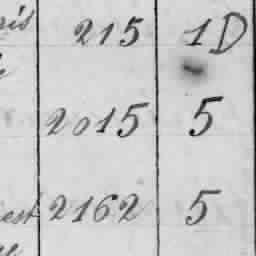 215 1D
2015 5
est 2162 5